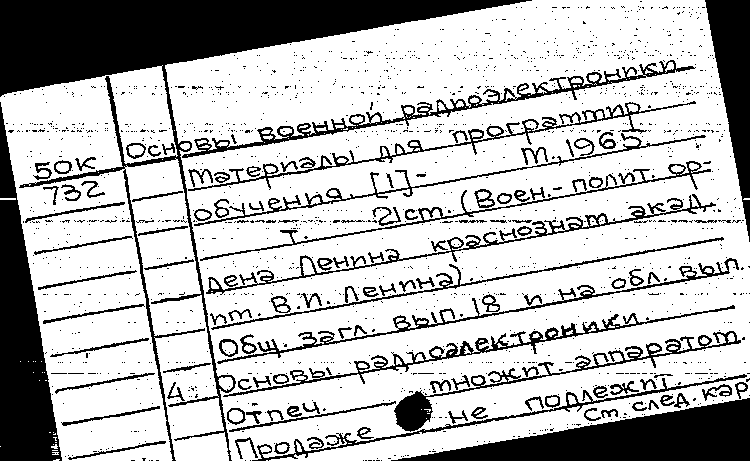 Основы военной радиоэлектроники
50К
732
Материалы для программир.
обучения. [1]- М., 1965.
т. 21см. (Воен.-полит. ор-
дена Ленина краснознам. акад.
им. В.И. Ленина).
Общ. загл. вып. 18 и на обл. вып.
4: Основы радиоэлектроники.
Отпеч. множит. аппаратом.
Продаже не подлежит.
См. след. кар